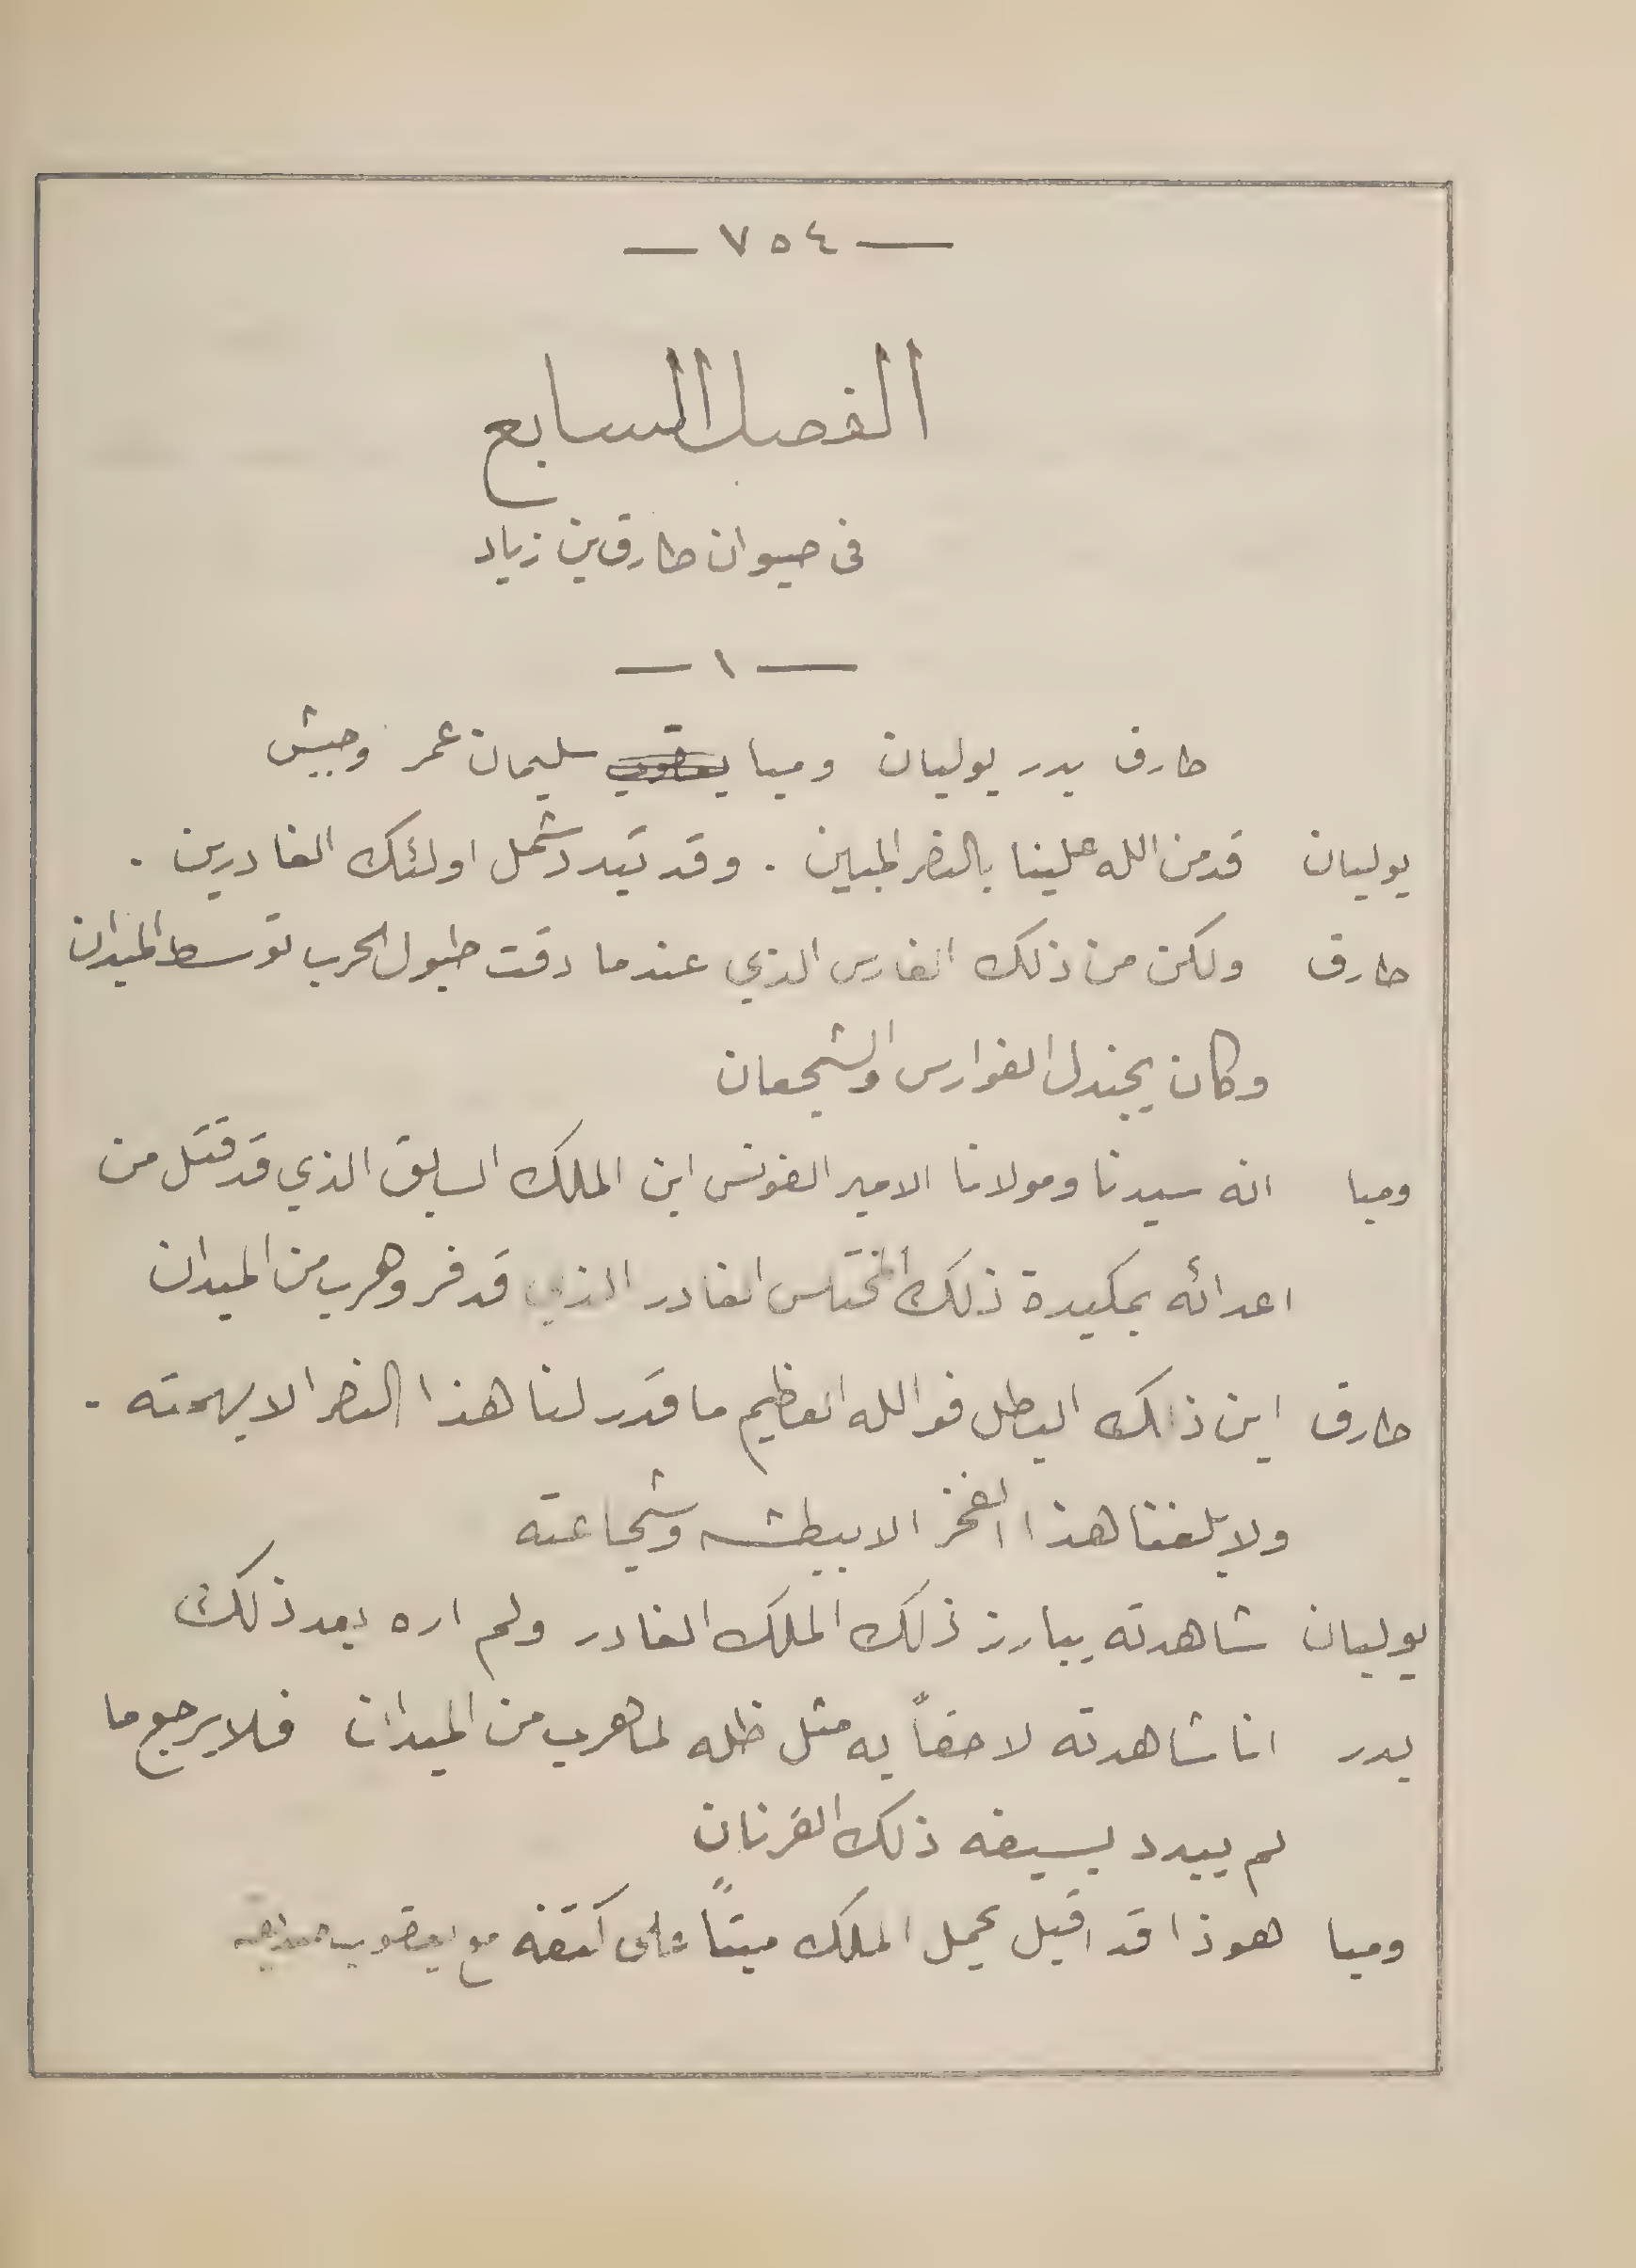 — ٧٥٤ —
الفصل السابع
في صيوان طارق بن زياد
— ١ —
طارق بدر يوليان وميا يعقوب سليمان عمر وجيش
يوليان قد من الله علينا بالنصر المبين . وقد تبدد شمل اولئك الغادرين .
طارق ولكن من ذلك الفارس الذي عندما دقت طبول الحرب توسط الميدان
وكان يجندل الفوارس والشجعان
وميا انه سيدنا ومولانا الامير الفونس ابن الملك السابق الذي قد قتل من
اعدائه بمكيدة ذلك المختلس الغادر الذي قد فر وهرب من الميدان
طارق اين ذلك البطل فو الله العظيم ما قدر لنا هذا النصر الا بهمته .
ولا بلغنا هذا الفخر الا ببطشه وشجاعته
يوليان شاهدته يبارز ذلك الملك الغادر ولم اره بعد ذلك
بدر انا شاهدته لاحقاً به مثل ظله لما هرب من الميدان فلا يرجع ما
لم يبدد بسيفه ذلك القرنان
وميا هوذا قد اقبل يحمل الملك ميتاً على اكتفه مع يعقوب